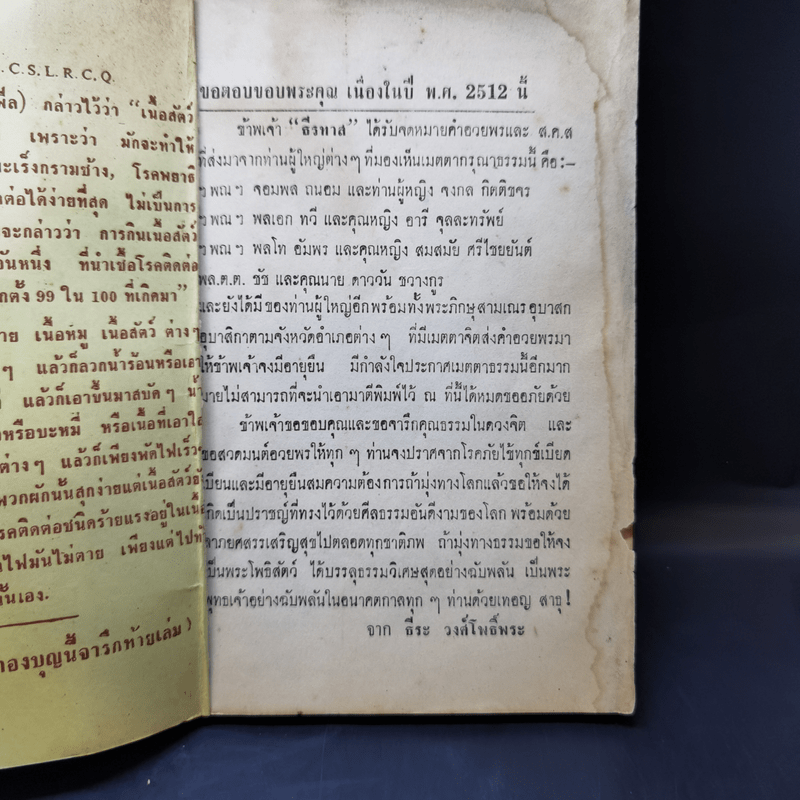 . C. S. L. R. C. Q.
กล่าวไว้ว่า "เนื้อสัตว์
เพราะว่า มักจะทำให้
มะเร็งกรามช้าง, โรคพยาธิ
ต่อได้ง่ายที่สุด ไม่เป็นการ
จะกล่าวว่า การกินเนื้อสัตว์
วันหนึ่ง ที่นำเชื้อโรคติดต่อ
ตั้ง 99 ใน 100 ที่เกิดมา"
เนื้อหมู เนื้อสัตว์ ต่างๆ
ๆ แล้วก็ลวกน้ำร้อนหรือเอา
แล้วก็เอาขึ้นมาสบัดๆ น้ำ
หรือบะหมี่ หรือเนื้อที่เอาใส่
ต่างๆ แล้วก็เพียงพัดไฟเร็วๆ
พวกผักนั้นสุกง่ายแต่เนื้อสัตว์
โรคติดต่อชนิดร้ายแรงอยู่ในเนื้อ
ไฟมันไม่ตาย เพียงแต่ไป
นั้นเอง.
กองบุญนี้จารึกท้ายเล่ม)
ขอตอบขอบพระคุณ เนื่องในปี พ.ศ. 2512 นี้
ข้าพเจ้า "ธีรทาส" ได้รับจดหมายคำอวยพรและ ส.ค.ส
ที่ส่งมาจากท่านผู้ใหญ่ต่างๆ ที่มองเห็นเมตตากรุณาธรรมนี้ คือ:–
ฯพณฯ จอมพล ถนอม และท่านผู้หญิง จงกล กิตติขจร
ฯพณฯ พลเอก ทวี และคุณหญิง อารี จุลละทรัพย์
ฯพณฯ พลโท อัมพร และคุณหญิง สมสมัย ศรีไชยยันต์
พล.ต.ต. ชัช และคุณนาย ดาววัน ชวางกูร
และยังได้มีของท่านผู้ใหญ่อีกพร้อมทั้งพระภิกษุสามเณรอุบาสก
อุบาสิกาตามจังหวัดอำเภอต่างๆ ที่มีเมตตาจิตส่งคำอวยพรมา
ให้ข้าพเจ้าจงมีอายุยืน มีกำลังใจประกาศเมตตาธรรมนี้อีกมาก
มายไม่สามารถที่จะนำเอามาตีพิมพ์ไว้ ณ ที่นี้ได้หมดขออภัยด้วย
ข้าพเจ้าขอขอบคุณและขอจารึกคุณธรรมในดวงจิต และ
ขอสวดมนต์อวยพรให้ทุกๆ ท่านจงปราศจากโรคภัยไข้ทุกข์เบียด
เบียนและมีอายุยืนสมความต้องการถ้ามุ่งทางโลกแล้วขอให้จงได้
เกิดเป็นปราชญ์ที่ทรงไว้ด้วยศีลธรรมอันดีงามของโลก พร้อมด้วย
ลาภยศสรรเสริญสุขไปตลอดทุกชาติภพ ถ้ามุ่งทางธรรมขอให้จง
เป็นพระโพธิสัตว์ ได้บรรลุธรรมวิเศษสุดอย่างฉับพลัน เป็นพระ
พุทธเจ้าอย่างฉับพลันในอนาคตกาลทุกๆ ท่านด้วยเทอญ สาธุ!
จาก ธีระ วงศ์โพธิ์พระ